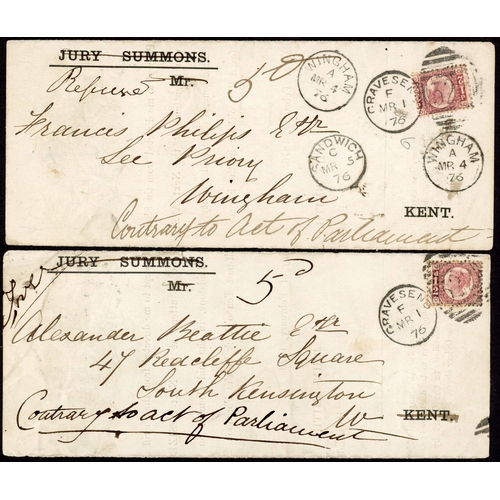 JURY SUMMONS.
Mr.
5d
Refused
Francis Philips Esqr
Lee Priory
Wingham
KENT.
Contrary to Act of Parliament
WINGHAM
A
MR 4
76
GRAVESEND
F
MR 1
76
SANDWICH
C
MR 5
76
WINGHAM
A
MR 4
76
JURY SUMMONS.
Mr.
5d
Alexander Beattie Esqr
47 Redcliffe Square
South Kensington
W
KENT.
Contrary to act of Parliament
GRAVESEND
F
MR 1
76